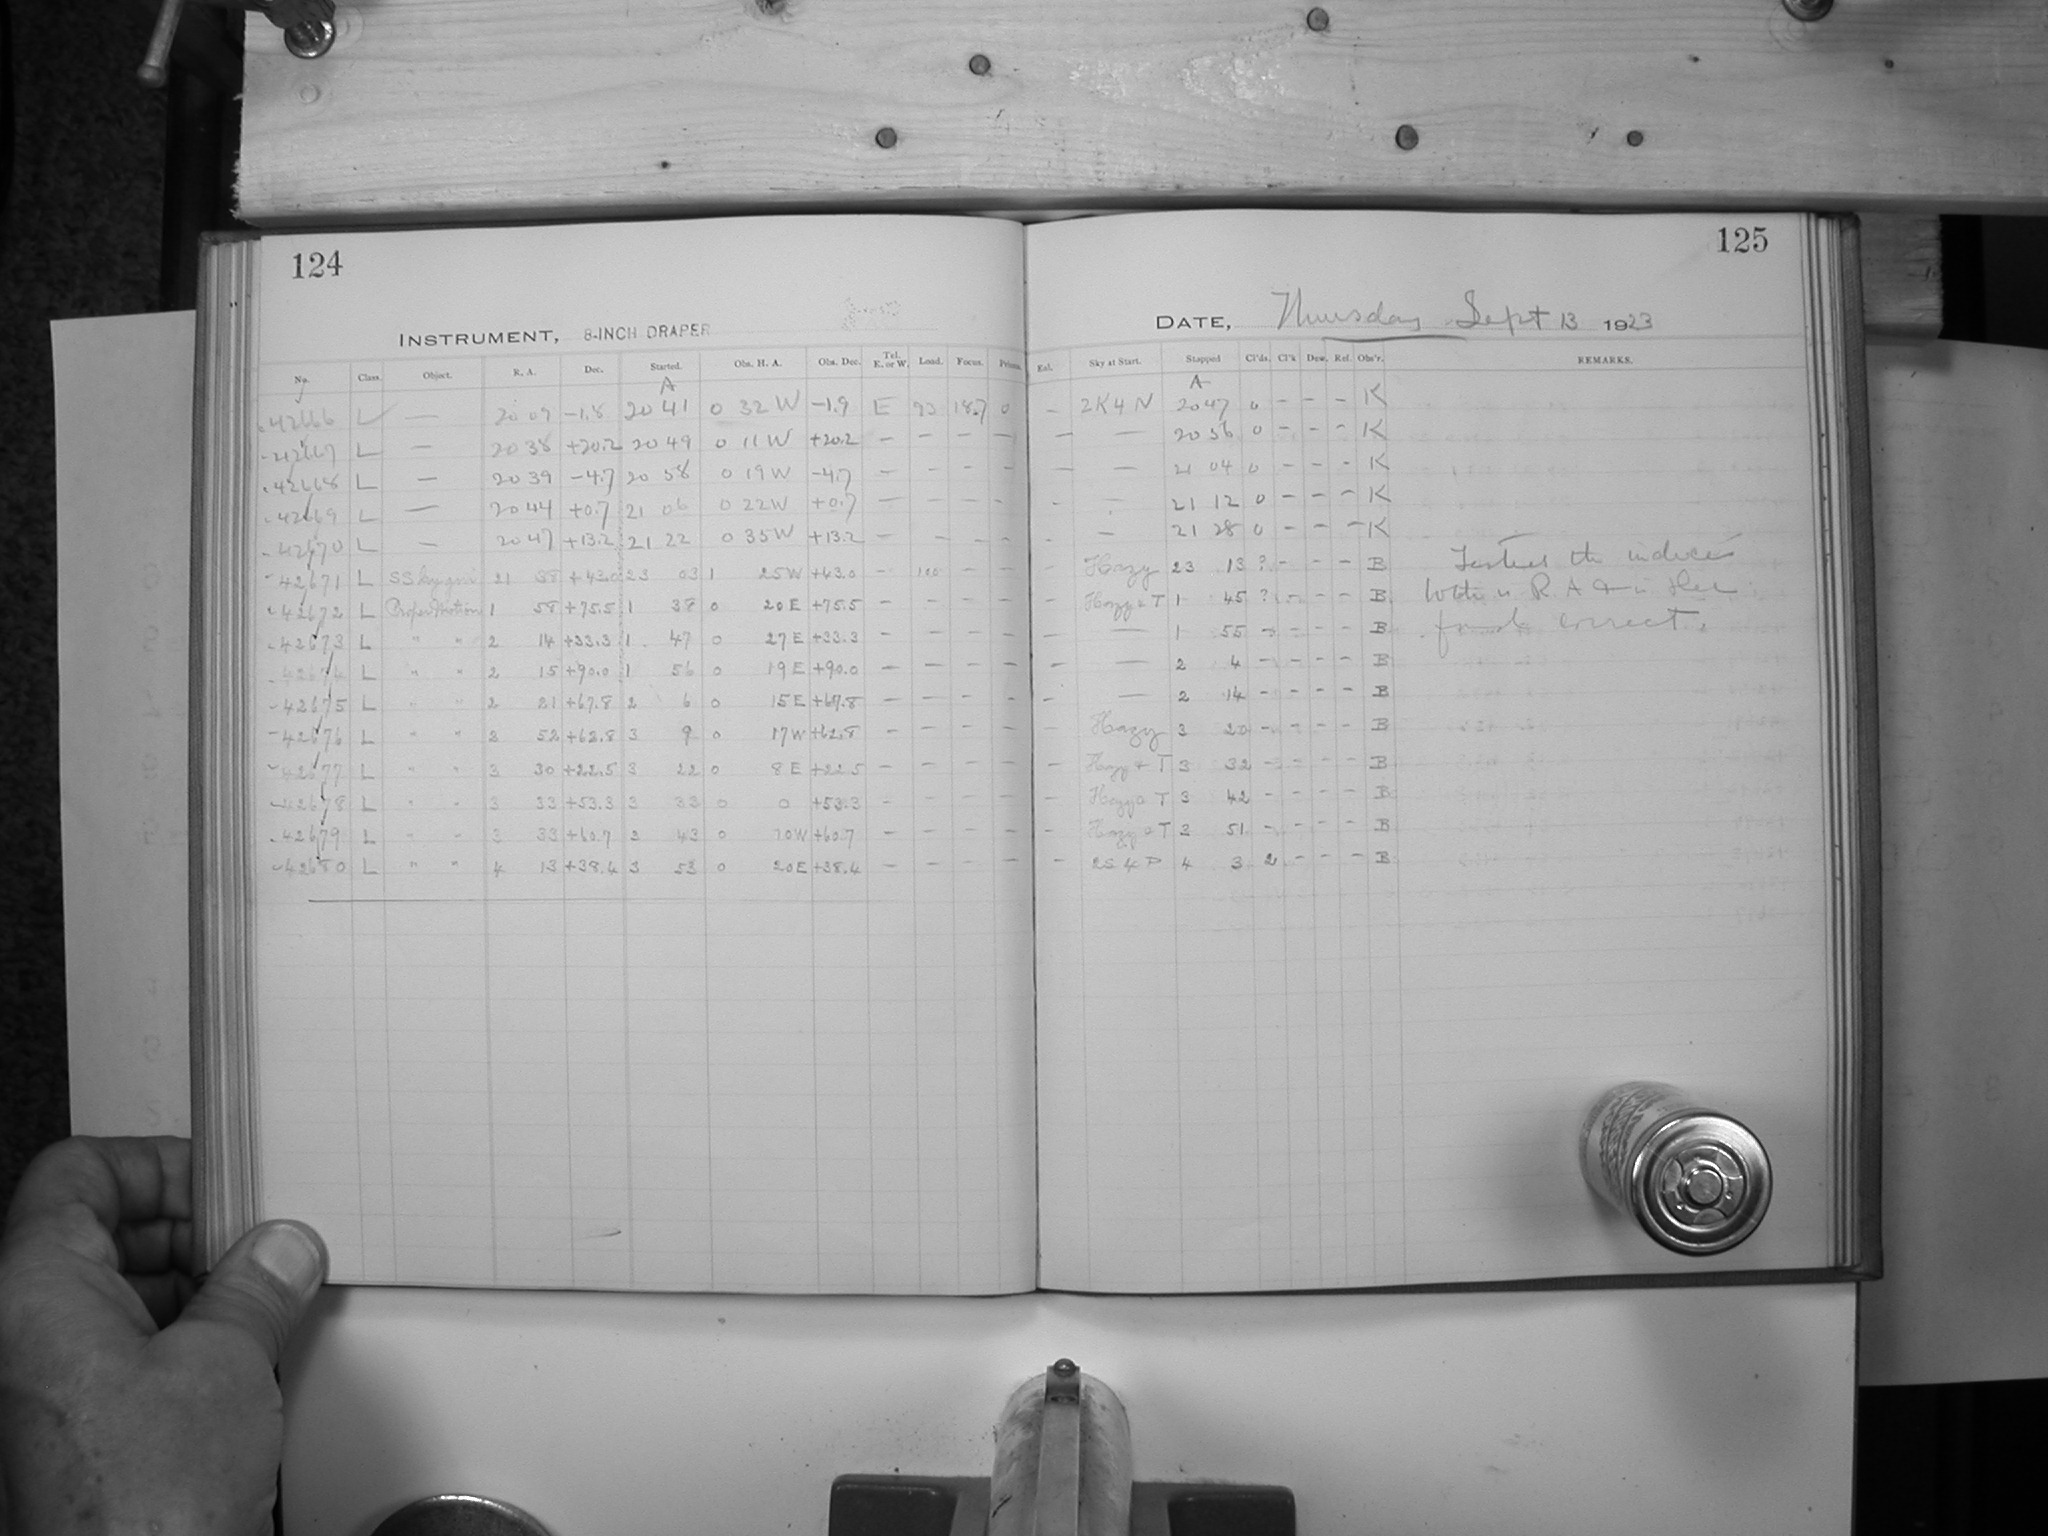 124
INSTRUMENT, 8-INCH DRAPER
No. Class. Object. R. A. Dec. Started. Obs. H. A. Obs. Dec. Tel. E. or W. Load. Focus. Prisms.
A
42666 L — 20 09 -1.8 20 41 0 32 W -1.9 E 93 18.7 0
42667 L — 20 38 +20.2 20 49 0 11 W +20.2 — — — —
42668 L — 20 39 -4.7 20 58 0 19 W -4.7 — — — —
42669 L — 20 44 +0.7 21 06 0 22 W +0.7 — — — —
42670 L — 20 47 +13.2 21 22 0 35 W +13.2 — — — —
42671 L SS Cygni 21 38 +43.0 23 03 1 25 W +43.0 — 100 — —
42672 L Proper Motion 1 58 +75.5 1 38 0 20 E +75.5 — — — —
42673 L " " 2 14 +33.3 1 47 0 27 E +33.3 — — — —
42674 L " " 2 15 +90.0 1 56 0 19 E +90.0 — — — —
42675 L " " 2 21 +67.8 2 6 0 15 E +67.8 — — — —
42676 L " " 2 52 +62.8 3 9 0 17 W +62.8 — — — —
42677 L " " 3 30 +22.5 3 22 0 8 E +22.5 — — — —
42678 L " " 3 33 +53.3 3 33 0 0 +53.3 — — — —
42679 L " " 3 33 +60.7 3 43 0 10 W +60.7 — — — —
42680 L " " 4 13 +38.4 3 53 0 20 E +38.4 — — — —
125
DATE, Thursday Sept 13 1923
Eal. Sky at Start. Stopped Cl'ds. Cl'k Dew. Ref. Obs'r. REMARKS.
A
— 2K4N 20 47 0 — — — K
— — 20 56 0 — — — K
— — 21 04 0 — — — K
— — 21 12 0 — — — K
— — 21 28 0 — — — K
— Hazy 23 13 ? — — — B Tested the indices
— Hazy & T 1 45 ? — — — B both in R.A & in Dec
— — 1 55 — — — — B found correct.
— — 2 4 — — — — B
— — 2 14 — — — — B
— Hazy 3 20 — — — — B
— Hazy & T 3 32 — — — — B
— Hazy & T 3 42 — — — — B
— Hazy & T 3 51 — — — — B
— 2S4P 4 3 2 — — — B